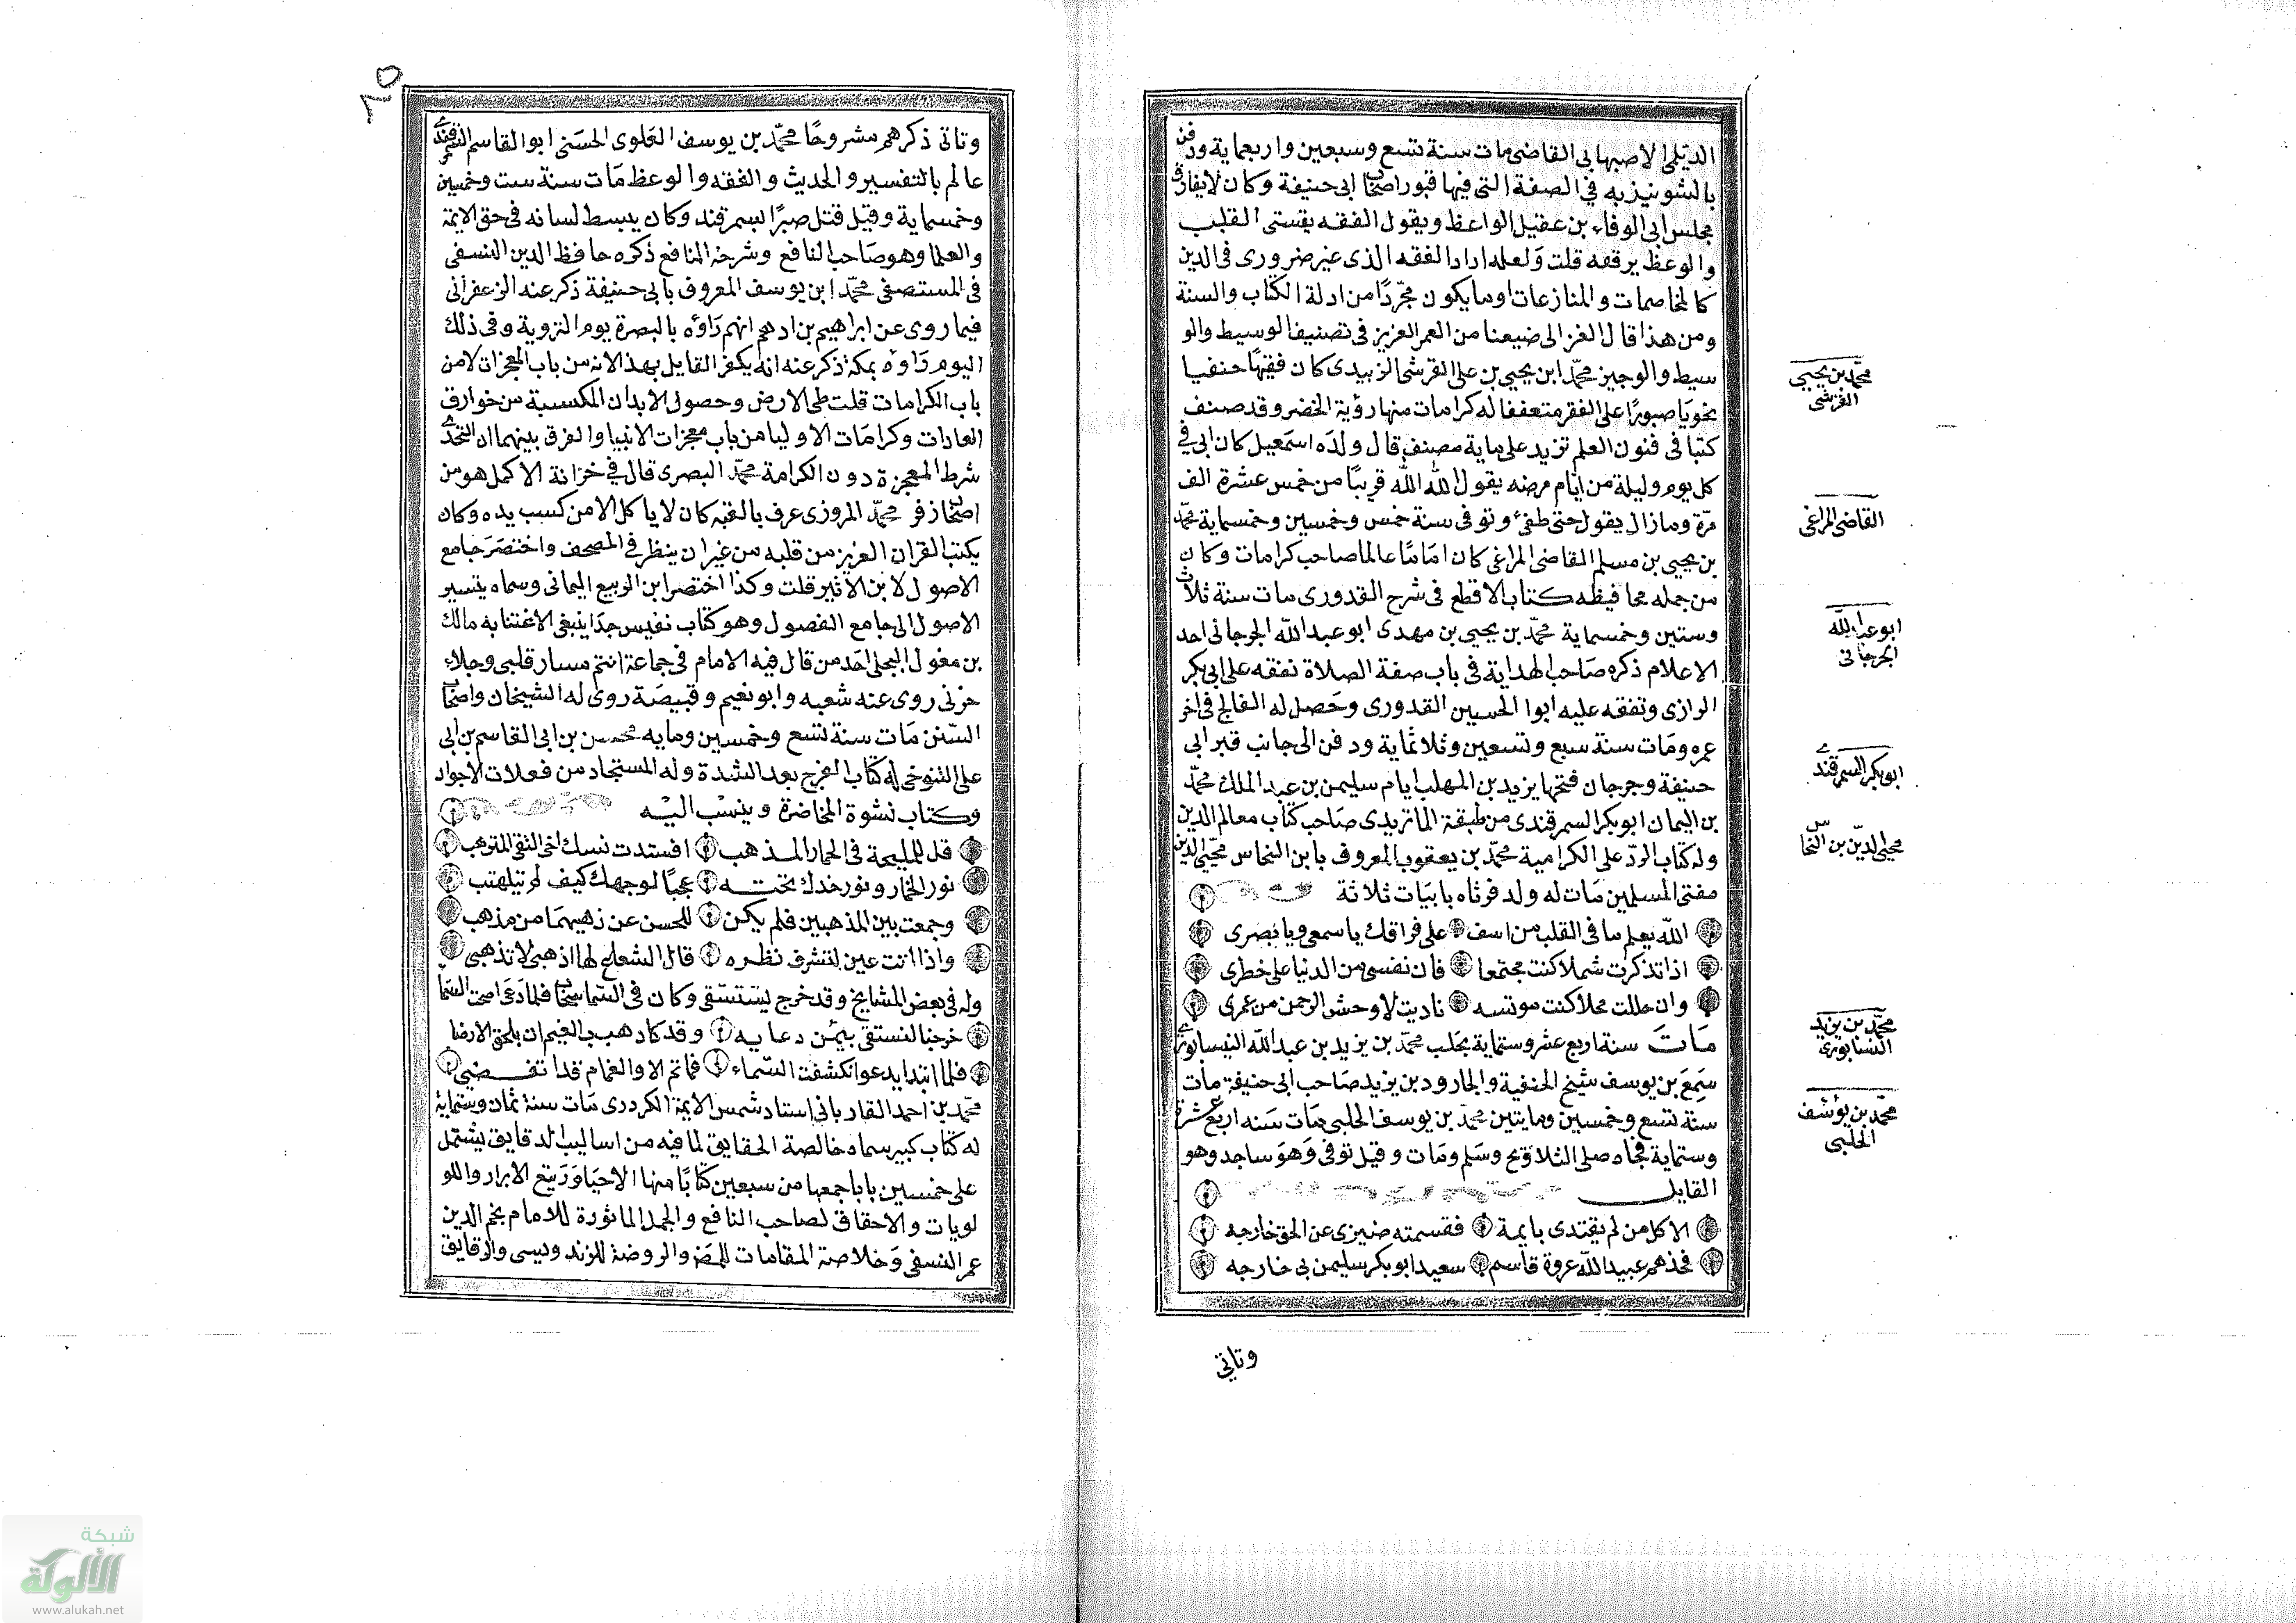 الديلى الاصبهانى القاضى مات سنة تسع وسبعين واربعماية ودفن
بالشونيزيه في الصفة التى فيها قبور اصحاب ابى حنيفة وكان لايفارق
مجلس ابى الوفاء بن عقيل الواعظ ويقول الفقه يقسى القلب
والوعظ يرققه قلت ولعله اراد الفقه الذى غير ضرورى في الدين
كالمخاصمات والمنازعات وما يكون مجردًا من ادلة الكتاب والسنة
ومن هذا قال الغزالى ضيعنا من العمر العزيز في تصنيف الوسيط والو
سيط والوجيز محمد ابن يحيى بن على القرشى الزبيدى كان فقيهًا حنفيا
نحويا صبورًا على الفقر متعففا له كرامات منها رؤية الخضر وقد صنف
كتبا في فنون العلم تزيد على ماية مصنف قال ولده اسمعيل كان ابى في
كل يوم وليلة من ايام مرضه يقول الله الله قريبًا من خمس عشرة الف
مرة ومازال يقول حتى طفئ وتوفى سنة خمس وخمسين وخمسماية محمد
بن يحيى بن مسلم القاضى المراغى كان امامًا عالما صاحب كرامات وكان
من جمله محافيظه كتاب الاقطع في شرح القدورى مات سنة ثلاث
وستين وخمسماية محمد بن يحيى بن مهدى ابو عبد الله الجرجانى احد
الاعلام ذكره صاحب الهداية في باب صفة الصلاة تفقه على ابى بكر
الرازى وتفقه عليه ابوا الحسين القدورى وحصل له الفالج في اخر
عمره ومات سنة سبع وتسعين وثلاثماية ودفن الى جانب قبر ابى
حنيفة وجرجان فتحها يزيد بن المهلب ايام سليمن بن عبد الملك محمد
بن اليمان ابو بكر السمرقندى من طبقة الماتريدى صاحب كتاب معالم الدين
وله كتاب الرد على الكرامية محمد بن يعقوب المعروف بابن النحاس محيى الدين
مفتى المسلمين مات له ولد فرثاه بابيات ثلاثة
الله يعلم ما في القلب من اسف على فراقك يا سمعى ويا بصرى
اذا تذكرت شملا كنت مجتمعا فان نفسى من الدنيا على خطرى
وان حللت محلا كنت مونسه ناديت لا وحش الرحمن من عمرى
مات سنة اربع عشر وستماية بحلب محمد بن يزيد بن عبد الله النيسابورى
سمع بن يوسف شيخ الحنفية والجارود بن يزيد صاحب ابى حنيفة مات
سنة تسع وخمسين ومايتين محمد بن يوسف الحلبى مات سنه اربع عشرة
وستماية فجاه صلى التلاويح وسلم ومات وقيل توفى وهو ساجد وهو
القايل
الا كل من لم يقتدى بايمة فقسمته ضيزى عن الحق خارجه
فخذهم عبيد الله عروة قاسم سعيد ابو بكر سليمن بى خارجه
وتاتي
محمد بن يحيى
القرشى
القاضى المراغى
ابو عبد الله
الجرجانى
ابو بكر السمرقندى
محيى الدين بن النحاس
محمد بن يزيد
النسابورى
محمد بن يوسف
الحلبى
وتاتى ذكرهم مشروحًا محمد بن يوسف العلوى الحسنى ابو القاسم السمرقندى
عالم بالتفسير والحديث والفقه والوعظ مات سنة ست وخمسين
وخمسماية وقيل قتل صبرًا بسمرقند وكان يبسط لسانه في حق الايمة
والعلما وهو صاحب النافع وشرحه المنافع ذكره حافظ الدين النسفى
في المستصفى محمد ابن يوسف المعروف بابى حنيفة ذكر عنه الزعفرانى
فيما روى عن ابراهيم بن ادهم انهم راوه بالبصرة يوم التروية وفى ذلك
اليوم راوه بمكة ذكر عنه انه يكفر القايل بهذا لانه من باب المعجزات لا من
باب الكرامات قلت طى الارض وحصول الابدان المكسبة من خوارق
العادات وكرامات الاوليا من باب معجزات الانبيا والفرق بينهما ان التحدى
شرط المعجزة دون الكرامة محمد البصرى قال في خزانة الاكمل هو من
اصحاب زفر محمد المروزى عرف بالقبه كان لا ياكل الا من كسب يده وكان
يكتب القران العزيز من قلبه من غير ان ينظر في المصحف واختصر جامع
الاصول لابن الاثير قلت وكذا اختصر ابن الربيع اليمانى وسماه بتسير
الاصول الى جامع الفصول وهو كتاب نفيس جدا ينبغى الاغتنا به مالك
بن مغول البجلى احد من قال فيه الامام في جماعة انتم مسار قلبى وجلاء
حزنى روى عنه شعبه وابو نعيم وقبيصة روى له الشيخان واصحاب
السنن مات سنة تسع وخمسين ومايه محسن بن ابى القاسم بن ابى
على التنوخى له كتاب الفرج بعد الشدة وله المستجاد من فعلات الاجواد
وكتاب نشوة المحاضرة وينسب اليه
قل للمليحة في الخمار المذهب افسدت نسك اخى التقى المترهب
نور الخمار ونور خدك تحته عجبًا لوجهك كيف لم يتلهب
وجمعت بين المذهبين فلم يكن للحسن عن ذهبيهما من مذهب
واذا اتت عين لتشرف نظره قال الشعاع لها اذهبى لا تذهبى
وله في بعض المشايخ وقد خرج يستسقى وكان في السما سحاب فلما دعا اصحت السما
خرجنا لنستقى بيمن دعايه وقد كاد هب الغيم ان يلحق الارضا
فلما ابتدا يدعوا انكشفت السماء فما تم الا والغمام قد انفضى
محمد بن احمد القاربانى استاد شمس الايمة الكردرى مات سنة ثمان وستماية
له كتاب كبير سماه خالصة الحقايق لما فيه من اساليب الدقايق يشتمل
على خمسين بابا جمعها من سبعين كتابًا منها الاحيا وربيع الابرار واللو
لويات والاحقاق لصاحب النافع والجمل الماثورة للامام نجم الدين
عمر النسفى وخلاصة المقامات للمضر والروضة للزندويسى والرقايق